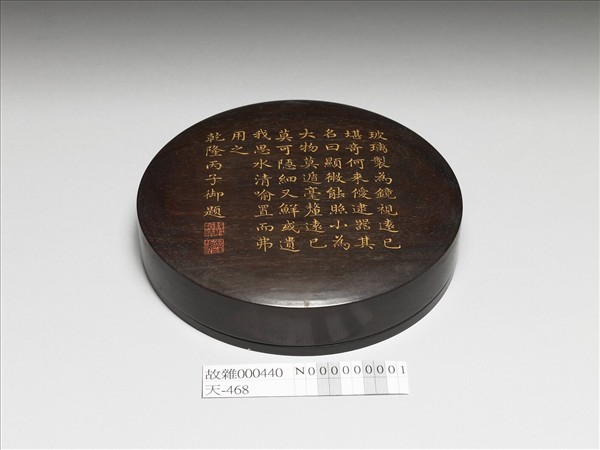 玻璃製為鏡視遠已
堪奇何來僾逮器其
名曰顯微能照小為
大物莫遁毫釐遠已
莫可隱細又鮮或遺
我思水清喻置而弗
用之
乾隆丙子御題
故雜000440
天-468
N000000001